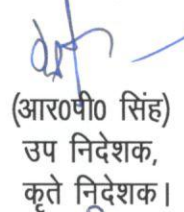 (आर०पी० सिंह)
उप निदेशक,
कृते निदेशक।